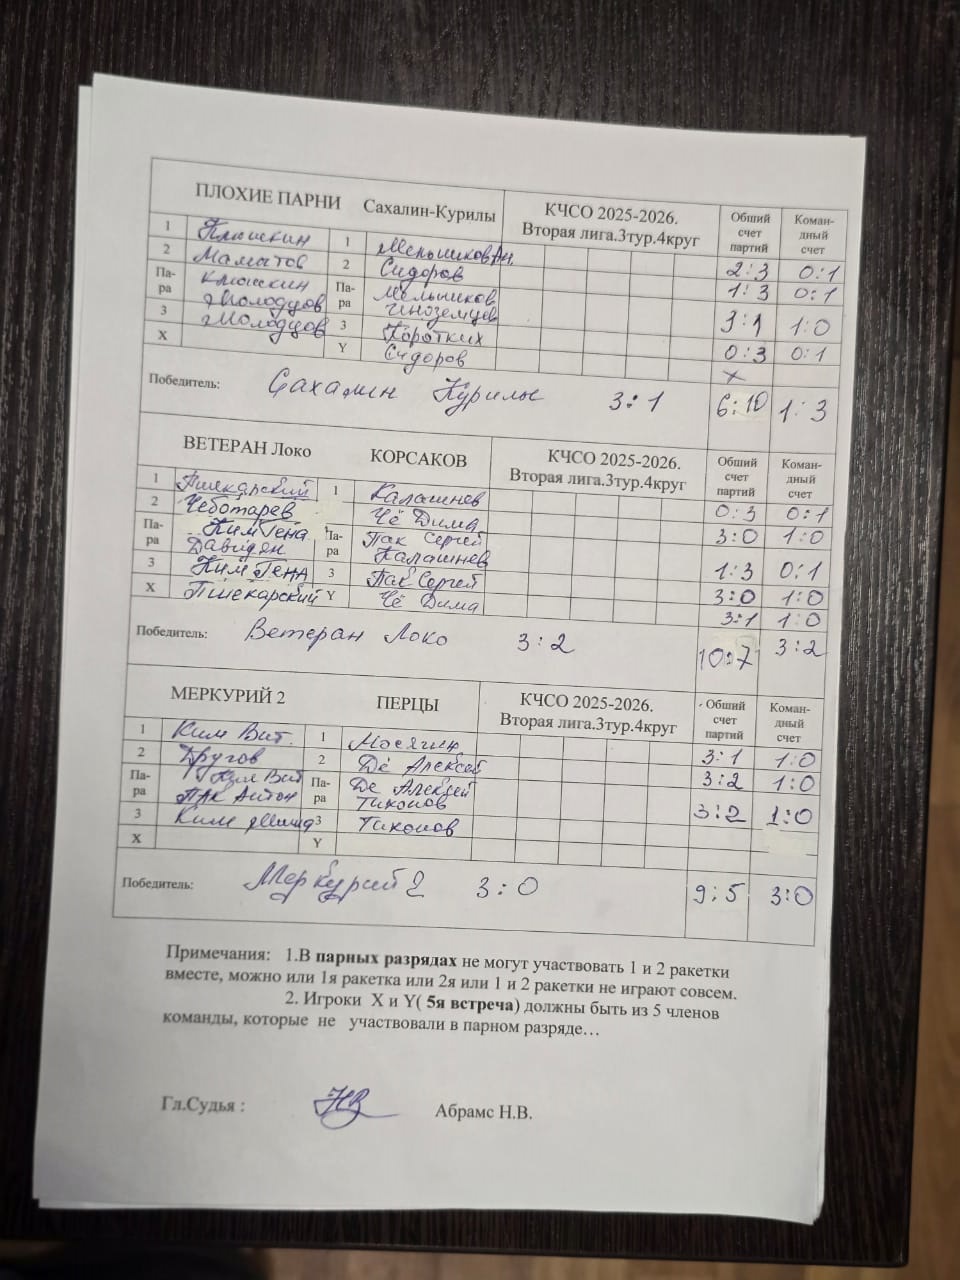 ПЛОХИЕ ПАРНИ Сахалин-Курилы КЧСО 2025-2026. Вторая лига.3тур.4круг Общий счет партий Коман-дный счет
1 Клюшкин 1 Мельников Ан. 2:3 0:1
2 Маматов 2 Сидоров 1:3 0:1
Па-ра Клюшкин Молодцов Па-ра Мельников Иноземцев 3:1 1:0
3 Молодцов 3 Коротких 0:3 0:1
X Y Сидоров x
Победитель: Сахалин Курилы 3:1 6:10 1:3
ВЕТЕРАН Локо КОРСАКОВ КЧСО 2025-2026. Вторая лига.3тур.4круг Общий счет партий Коман-дный счет
1 Пшекарский 1 Калашнев 0:3 0:1
2 Чеботарев Чё Дима 3:0 1:0
Па-ра Ким Гена Давидян Па-ра Пак Сергей Калашнев 1:3 0:1
3 Ким Гена 3 Пак Сергей 3:0 1:0
X Пшекарский Y Чё Дима 3:1 1:0
Победитель: Ветеран Локо 3:2 10:7 3:2
МЕРКУРИЙ 2 ПЕРЦЫ КЧСО 2025-2026. Вторая лига.3тур.4круг Общий счет партий Коман-дный счет
1 Ким Вит. 1 Мосягин 3:1 1:0
2 Другов 2 Де Алексей 3:2 1:0
Па-ра Ким Вит Пак Антон Па-ра Де Алексей Тихонов 3:2 1:0
3 Ким 3 Тихонов
X Y
Победитель: Меркурий 2 3:0 9:5 3:0
Примечания: 1.В парных разрядах не могут участвовать 1 и 2 ракетки
вместе, можно или 1я ракетка или 2я или 1 и 2 ракетки не играют совсем.
2. Игроки X и Y( 5я встреча) должны быть из 5 членов
команды, которые не участвовали в парном разряде…
Гл.Судья : Абрамс Н.В.